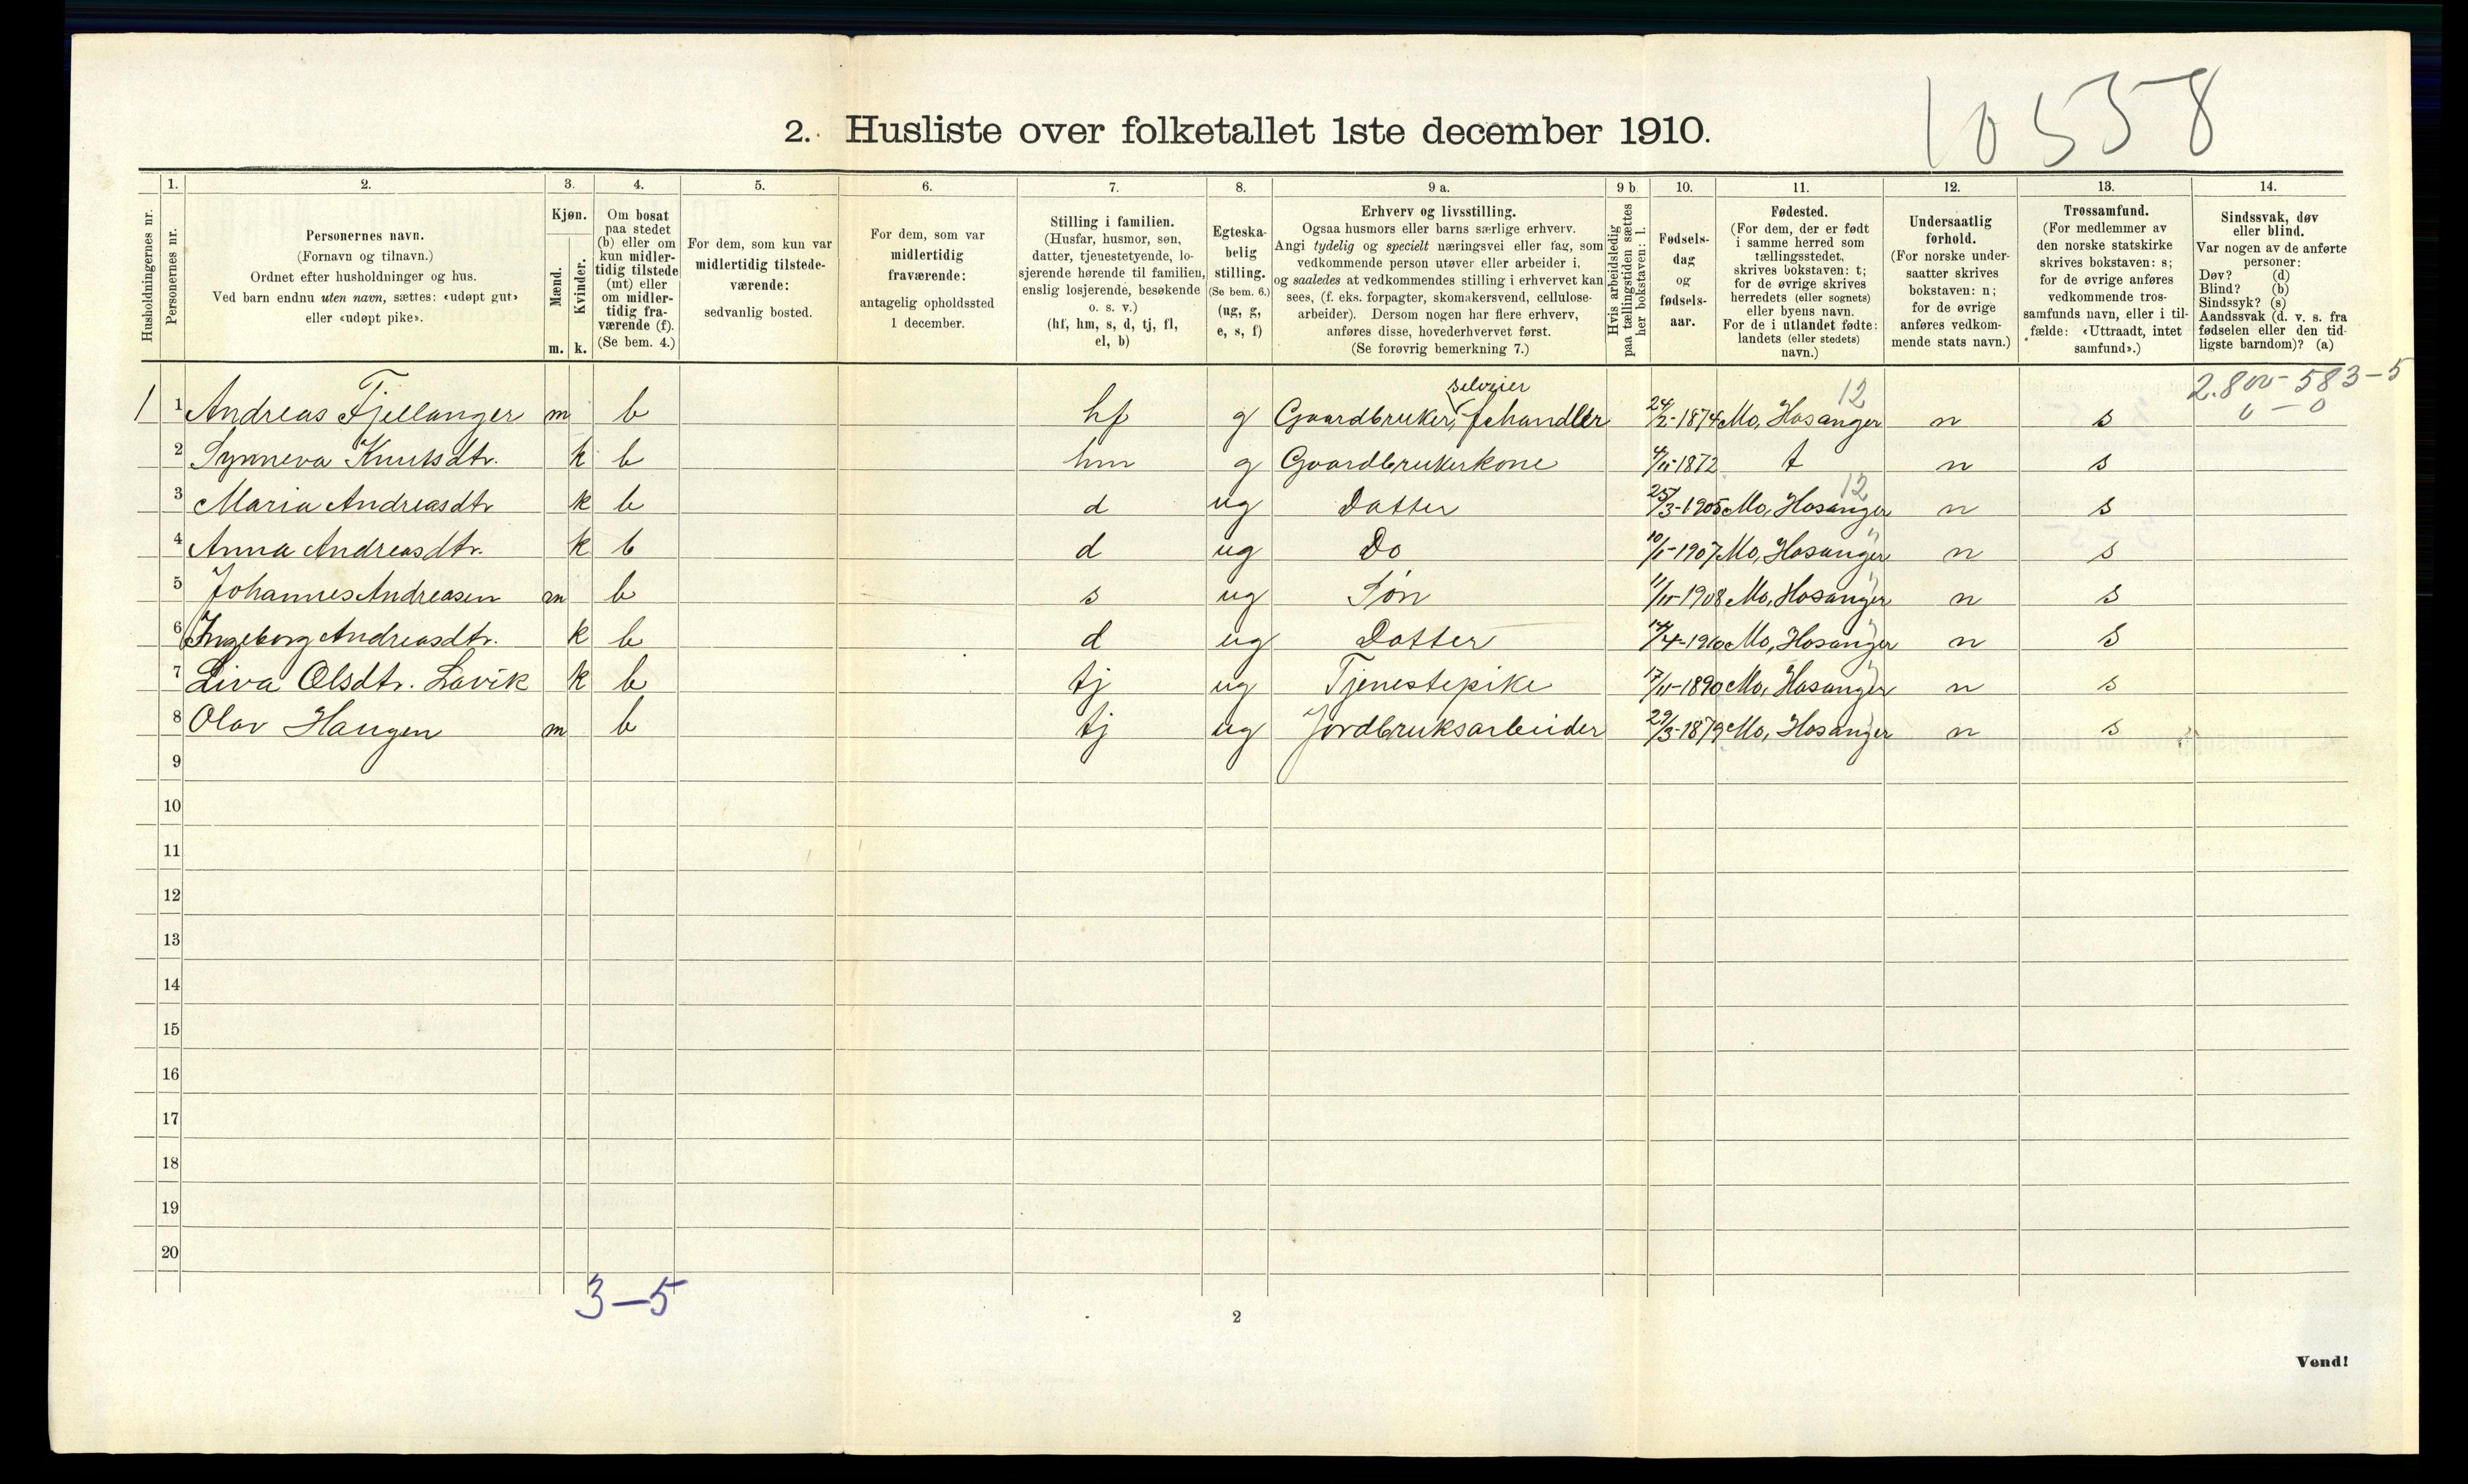 10558
2. Husliste over folketallet 1ste december 1910.
Husholdningernes nr.
1.
Personernes nr.
2.
Personernes navn.
(Fornavn og tilnavn.)
Ordnet efter husholdninger og hus.
Ved barn endnu uten navn, sættes: «udøpt gut»
eller «udøpt pike».
3.
Kjøn.
Mænd.
Kvinder.
m. k.
4.
Om bosat
paa stedet
(b) eller om
kun midler-
tidig tilstede
(mt) eller
om midler-
tidig fra-
værende (f).
(Se bem. 4.)
5.
For dem, som kun var
midlertidig tilstede-
værende:
sedvanlig bosted.
6.
For dem, som var
midlertidig
fraværende:
antagelig opholdssted
1 december.
7.
Stilling i familien.
(Husfar, husmor, søn,
datter, tjenestetyende, lo-
sjerende hørende til familien,
enslig losjerende, besøkende
o. s. v.)
(hf, hm, s, d, tj, fl,
el, b)
8.
Egteska-
belig
stilling.
(Se bem. 6.)
(ug, g,
e, s, f)
9 a.
Erhverv og livsstilling.
Ogsaa husmors eller barns særlige erhverv.
Angi tydelig og specielt næringsvei eller fag, som
vedkommende person utøver eller arbeider i,
og saaledes at vedkommendes stilling i erhvervet kan
sees, (f. eks. forpagter, skomakersvend, cellulose-
arbeider). Dersom nogen har flere erhverv,
anføres disse, hovederhvervet først.
(Se forøvrig bemerkning 7.)
9 b
Hvis arbeidsledig
paa tællingstiden sættes
her bokstaven: l.
10.
Fødsels-
dag
og
fødsels-
aar.
11.
Fødested.
(For dem, der er født
i samme herred som
tællingsstedet,
skrives bokstaven: t;
for de øvrige skrives
herredets (eller sognets)
eller byens navn.
For de i utlandet fødte:
landets (eller stedets)
navn.)
12.
Undersaatlig
forhold.
(For norske under-
saatter skrives
bokstaven: n;
for de øvrige
anføres vedkom-
mende stats navn.)
13.
Trossamfund.
(For medlemmer av
den norske statskirke
skrives bokstaven: s;
for de øvrige anføres
vedkommende tros-
samfunds navn, eller i til-
fælde: «Uttraadt, intet
samfund».)
14.
Sindssvak, døv
eller blind.
Var nogen av de anførte
personer:
Døv? (d)
Blind? (b)
Sindssyk? (s)
Aandssvak (d. v. s. fra
fødselen eller den tid-
ligste barndom)? (a)
selveier 12 2.800-583-5
1 1 Andreas Fjellanger m b hf g Gaardbruker, fehandler 24/2-1874 Mo, Hosanger n s 0-0
2 Synneva Knutsdtr. k b hm g Gaardbrukerkone 4/11-1872 t n s
12
3 Maria Andreasdtr k b d ug Datter 25/3-1905 Mo, Hosanger n s
4 Anna Andreasdtr. k b d ug Do 10/1-1907 Mo, Hosanger n s
5 Johannes Andreasen m b s ug Søn 11/11-1908 Mo, Hosanger n s
6 Ingeborg Andreasdtr. k b d ug Datter 14/4-1910 Mo, Hosanger n s
7 Liva Olsdtr. Lavik k b tj ug Tjenestepike 17/11-1890 Mo, Hosanger n s
8 Olav Haugen m b tj ug Jordbruksarbeider 29/3-1879 Mo, Hosanger n s
9
10
11
12
13
14
15
16
17
18
19
20
3-5
2
Vend!